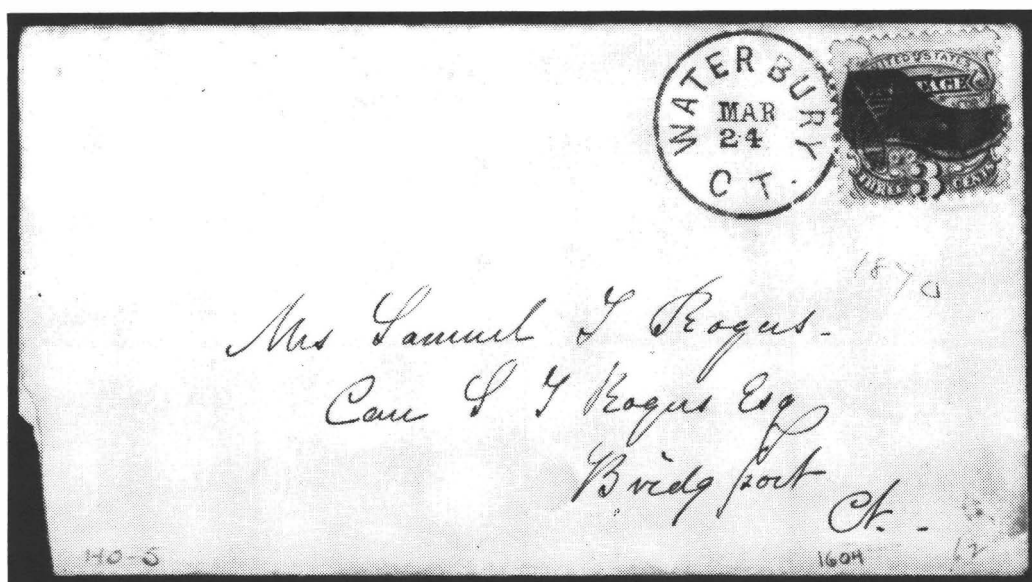 WATERBURY
MAR
24
CT.
UNITED STATES
THREE 3 CENTS
1870
Mrs Samuel T Rogers.
Care S T Rogers Esq
Bridgport
Ct.
140-S
1604
62